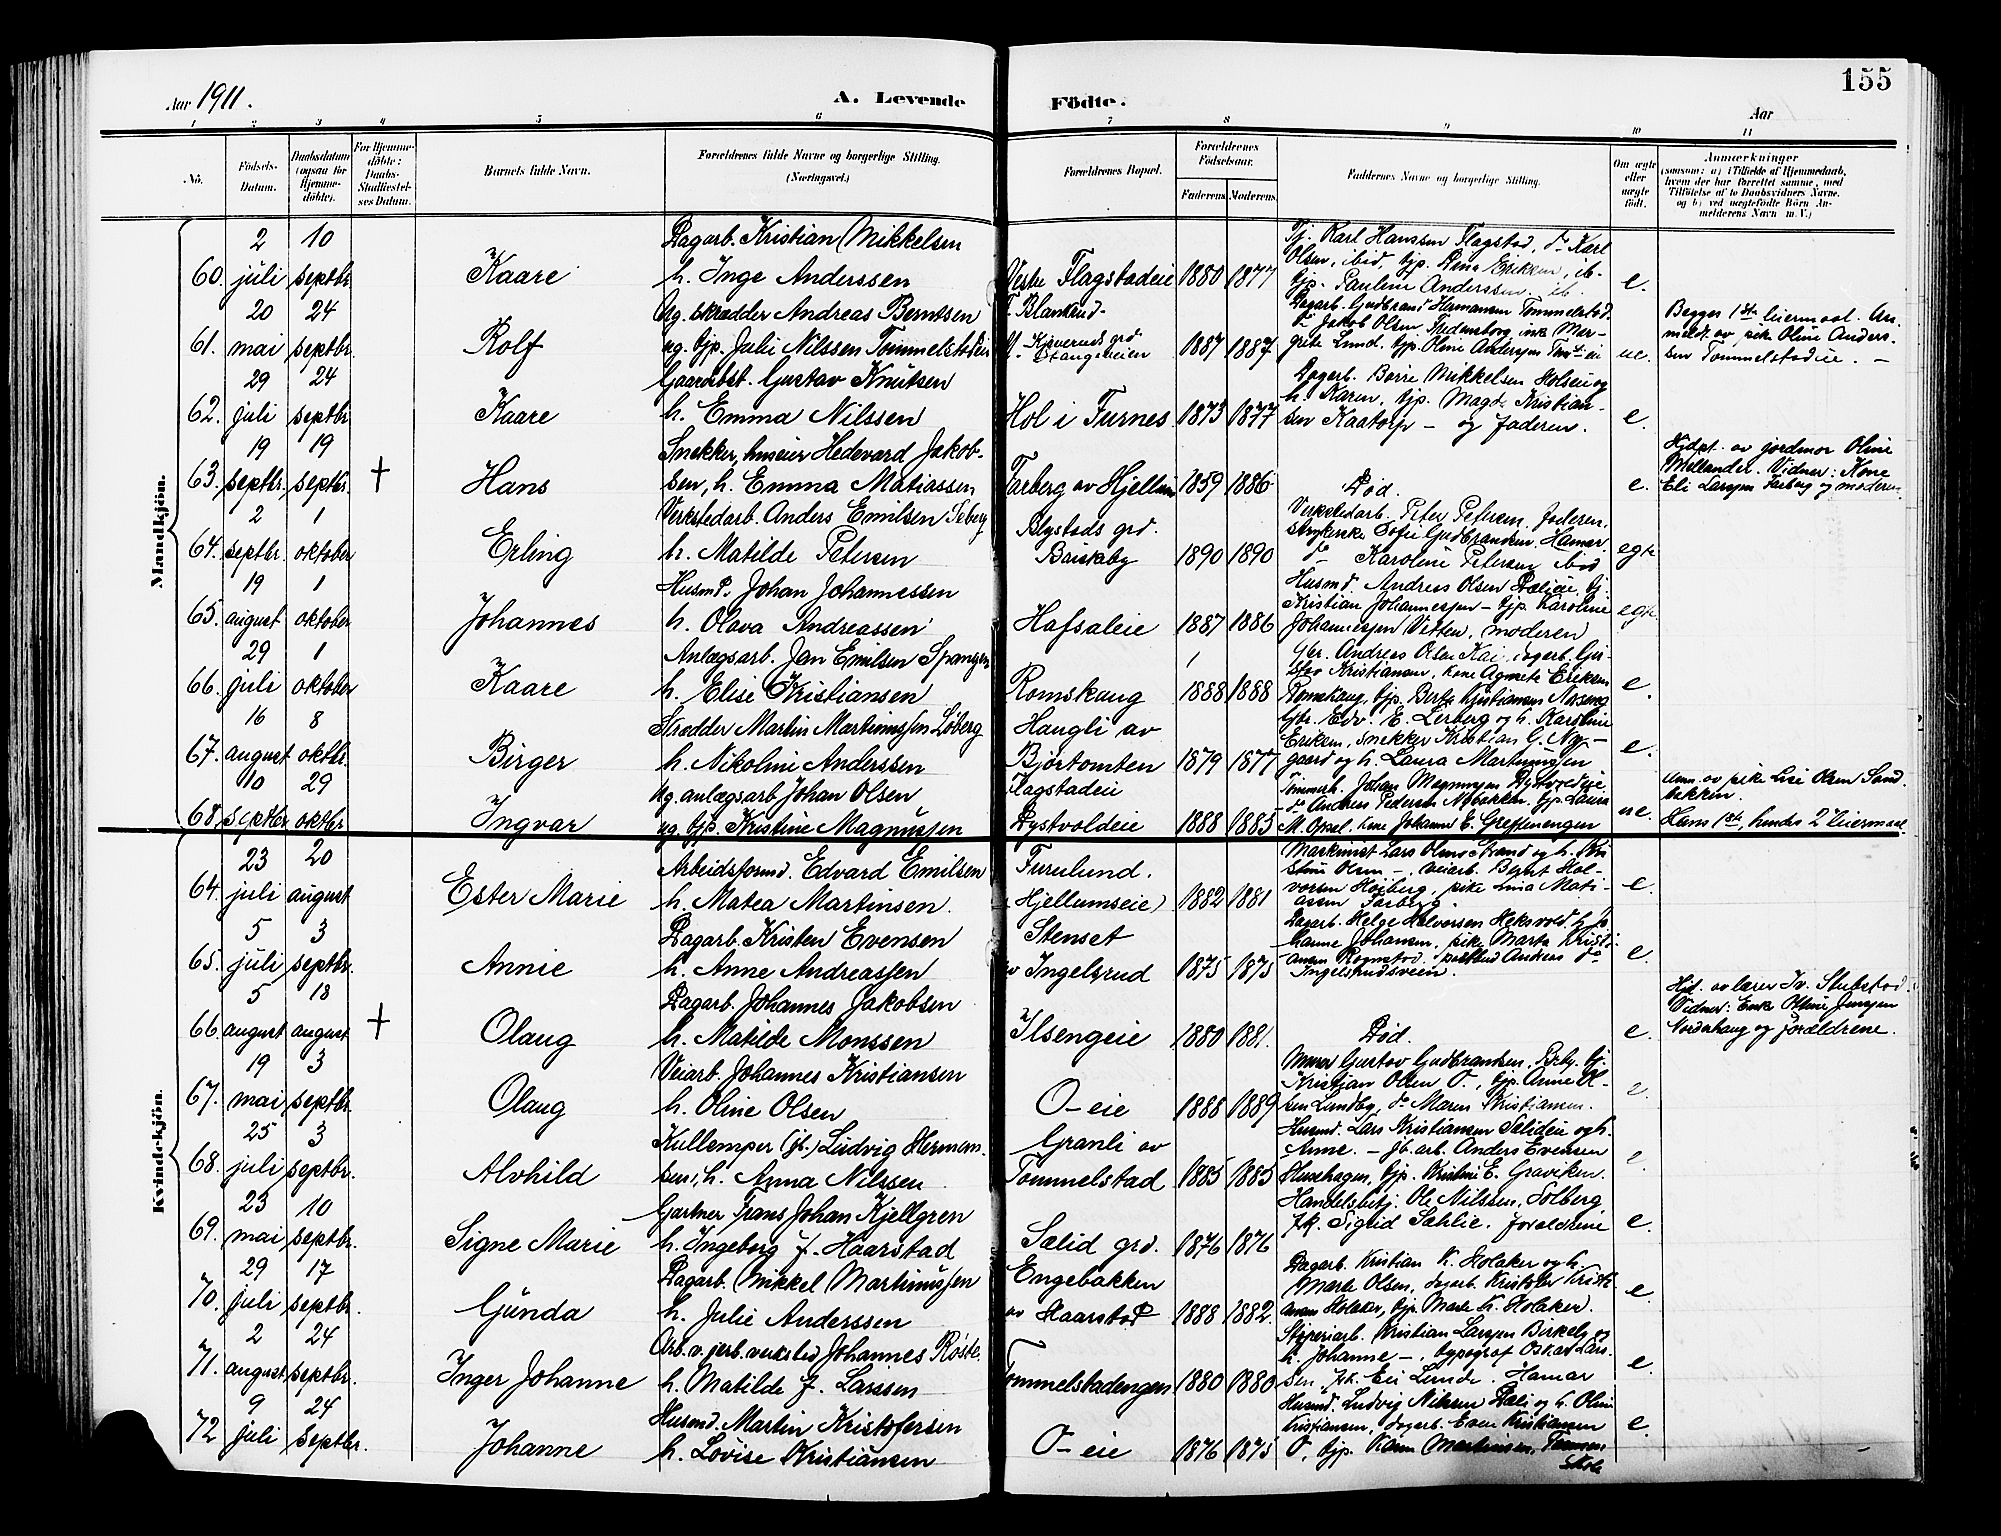 155
Aar 1911.
A. Levende Födte.
Aar
1 2 3 4 5 6 7 8 9 10 11
No.
Födsels-Datum.
Daabsdatum (ogsaa for Hjemme-döbte).
For Hjemme-döbte: Daabs-Stadfæstel-ses Datum.
Barnets fulde Navn.
Forældrenes fulde Navne og borgerlige Stilling. (Næringsvei.)
Forældrenes Bopæl.
Forældrenes Födselsaar.
Faderens. Moderens.
Faddernes Navne og borgerlige Stilling.
Om ægte eller uægte födt.
Anmærkninger
(saasom: a) i Tilfælde af Hjemmedaab, hvem der har forrettet samme, med Tilföielse af to Daabsvidners Navne, og b) ved uægtefödte Börn An-melderens Navn m. V.)
Mandkjön.
60. 2 juli 10 septbr. Kaare
Dagarb. Kristian Mikkelsen
h. Inge Anderssen
Vestre Flagstadeie 1880 1877
Tj. Karl Hanssen Flagstad, do Karl
Olsen, ibid, tjp. Dina Eriksen, ib.
tjp. Pauline Anderssen ib.
e.
61. 20 mai 24 septbr. Rolf
Ug. skrædder Andreas Berntsen
ug. tjp. Juli Nilssen Tommelstadeie
F. Blanksrud
M. Kjeverudsgrd Stangeveien 1887 1887
Dagarb. Gudbrand Hermansen Tommelstad
Jakob Olsen
grete Lund, tjp. Oline Anderssen
ue.
Begges 1ste leiermaal. An-
meldt av pike Oline Anders-
sen Tommelstadeie. —
62. 29 juli 24 septbr. Kaare
Gaardbst. Gustav Knutsen
h. Emma Nilssen
Hol i Furnes 1873 1877
Dagarb. Børre Mikkelsen Holseie og
h. Karen, tjp. Magda Kristian-
sen Kaatorp — og faderen.
e.
63. 19 septbr. 19 septbr. † Hans
Snekker, huseier Hedevard Jakob-
sen, h. Emma Matiassen
Farberg av Hjellum 1859 1886
Død.
e.
Hjdpt. av jordmor Oline
Mellander. Vidner: Kone
Eli Larssen Farberg og moderen
64. 2 septbr. 1 oktober Erling
Verkstedarb. Anders Emilsen Seberg
h. Matilde Petersen
Blystads grd.
Briskeby 1890 1890
Verkstedarb. Peter Petersen, faderen,
strykerske Sofie Gudbrandsen, Hamar.
do Karoline Petersen ibid
egte
65. 19 august 1 oktober Johannes
Husmd. Johan Johannessen
h. Olava Andreassen
Hafsaleie 1887 1886
Husmd. Andreas Olsen Dælieie, tj.
Kristian Johannessen — tjp. Karoline
Johannessen Vetten, moderen
egte
66. 29 juli 1 oktober Kaare
Anlægsarb. Jan Emilsen Spangen
h. Elise Kristiansen
Romskaug 1888 1888
Gbr. Andreas Olsen Kai, dagarb. Gu-
stav Kristiansen, kone Agnete Eriksen
Romskaug, tjp. Berta Kristiansen Aaseng
e.
67. 16 august 8 oktbr. Birger
Skrædder Martin Martinussen Løberg
h. Nikoline Anderssen
Haugli av
Bjørtomten 1879 1877
Gbr. Edv. E. Lerberg og h. Karoline
Eriksen, snekker Kristian G. Ny-
gaard og h. Laura Martinussen
e.
68. 10 septbr 29 oktbr. Ingvar
Ug. anlægsarb. Johan Olsen,
ug. tjp. Kristine Magnussen
Flagstadeie
Dystvoldeie 1888 1885
Tømmerh. Johan Magnussen Dystvoldeie,
do Andreas Pedersen Nybakken, tjp. Laura
M. Opsal, kone Johanne E. Greftenengen
ue.
Anm. av pike Lise Olsen Sand-
bakken.
Hans 1ste, hendes 2 leiermaal.
Kvindekjön.
64. 23 juli 20 august Ester Marie
Arbeidsformd. Edvard Emilsen
h. Matea Martinsen.
Furulund.
(Hjellumseie) 1882 1881
Maskinist Lars Olsen Strand og h. Kri-
stine Olsen —, veiarb. Bernt Hal-
vorsen Høiberg, pike Lina Mati-
assen Farberg.
e.
65. 5 juli 3 septbr. Annie
Dagarb. Kristen Evensen
h. Anne Andreassen
Stenset
av Ingelsrud 1875 1875
Dagarb. Helge Halvorsen Heksvold,
hanne Johansen, pike Marta Kristi-
ansen Rognstad,
Ingelsrudsveien.
e.
66. 5 august 18 august † Olaug
Dagarb. Johannes Jakobsen
h. Matilde Monssen
Ilsengeie 1880 1881.
Død.
e.
Hjd. av lærer Iv. Stubstad.
Vidner: Enke Oline Jenssen
Norderhaug og forældrene.
67. 19 mai 3 septbr. Olaug
Veiarb. Johannes Kristiansen
h. Oline Olsen
O-eie 1888 1889
Murer Gustav Gudbrandsen, tj.
Kristian Olsen O., tjp. Anne Ol-
sen Lundby, do Maren Kristiansen.
e.
68. 25 juli 3 septbr. Alvhild
Kullemper (jb.) Ludvig Herman-
sen, h. Anna Nilssen
Granli av
Tommelstad 1885 1885
Husmd. Lars Kristiansen Salideie og h.
Anne. — jb. arb. Anders Evensen
Husehagen, tjp. Kristine E. Graviken.
e.
69. 23 mai 10 septbr. Signe Marie
Gartner Frans Johan Kjellgren
h. Ingeborg f. Haarstad
Sælid grd. 1876 1876
Handelsbetj. Ole Nilssen, Solberg
frk. Sigrid Sæhlie. forældrene
e.
70. 29 juli 17 septbr. Gunda
Dagarb. Mikkel Martinussen
h. Julie Anderssen
Engebakken
av Haarstad 1888 1882.
Dagarb. Kristian K. Holaker og h.
Marte Olsen, dagarb. Kristofer Kristi-
ansen Holaker, tjp. Marte K. Holaker.
e.
71. 2 august 24 septbr. Inger Johanne
Arb. v. jerb. verksted Johannes Røste.
h. Matilde f. Larssen
Tommelstadengen 1880 1880
Støperiarb. Kristian Larssen Birkely og
h. Johanne —, typograf Oskar Lars-
sen, frk. Eli Lunde. Hamar
e.
72 9 juli 24 septbr. Johanne
Husmd. Martin Kristofersen
h. Lovise Kristiansen
O-eie 1876 1875
Husmd. Ludvig Nilssen Dæli og h. Oline
Kristiansen, dagarb. Even Kristiansen
O, tjp. Karen Martinsen,
e.